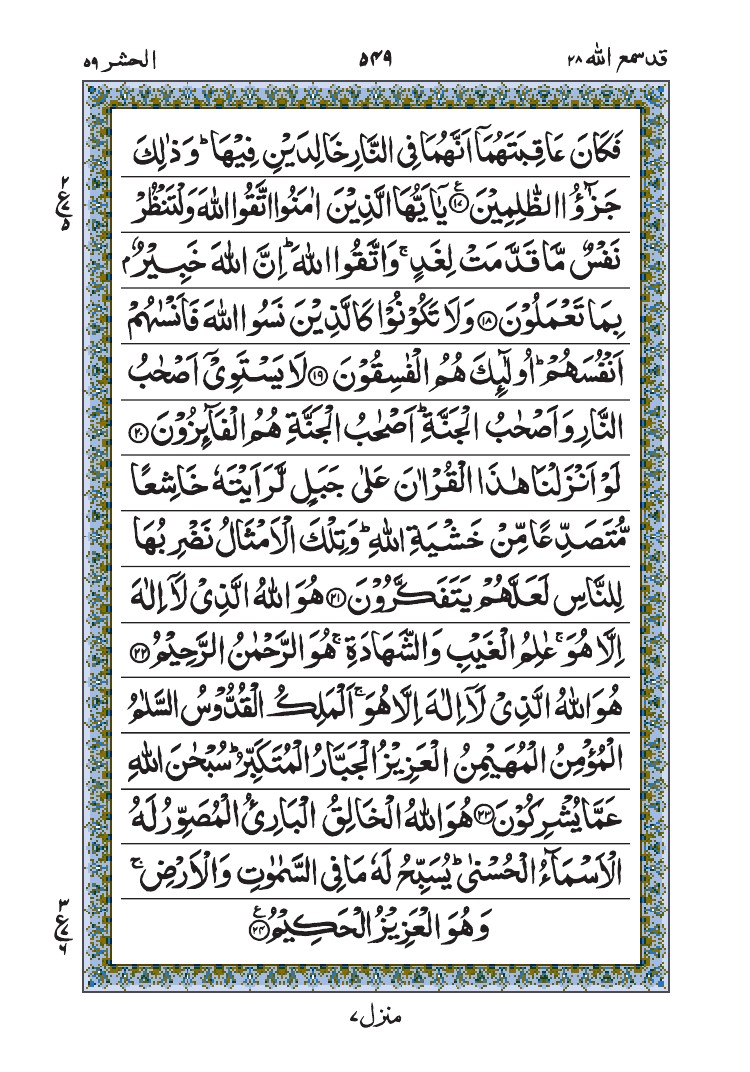 قد سمع الله ۲۸
۵۴۹
الحشر ۵۹
فَكَانَ عَاقِبَتَهُمَاۤ اَنَّهُمَا فِی النَّارِ خَالِدَیْنِ فِیْهَا ؕ وَ ذٰلِكَ
جَزٰٓؤُا الظّٰلِمِیْنَ ﴿۱۷﴾ یٰۤاَیُّهَا الَّذِیْنَ اٰمَنُوا اتَّقُوا اللّٰهَ وَ لْتَنْظُرْ
نَفْسٌ مَّا قَدَّمَتْ لِغَدٍ ۚ وَ اتَّقُوا اللّٰهَ ؕ اِنَّ اللّٰهَ خَبِیْرٌۢ
بِمَا تَعْمَلُوْنَ ﴿۱۸﴾ وَ لَا تَكُوْنُوْا كَالَّذِیْنَ نَسُوا اللّٰهَ فَاَنْسٰىهُمْ
اَنْفُسَهُمْ ؕ اُولٰٓىِٕكَ هُمُ الْفٰسِقُوْنَ ﴿۱۹﴾ لَا یَسْتَوِیْۤ اَصْحٰبُ
النَّارِ وَ اَصْحٰبُ الْجَنَّةِ ؕ اَصْحٰبُ الْجَنَّةِ هُمُ الْفَآىِٕزُوْنَ ﴿۲۰﴾
لَوْ اَنْزَلْنَا هٰذَا الْقُرْاٰنَ عَلٰی جَبَلٍ لَّرَاَیْتَهٗ خَاشِعًا
مُّتَصَدِّعًا مِّنْ خَشْیَةِ اللّٰهِ ؕ وَ تِلْكَ الْاَمْثَالُ نَضْرِبُهَا
لِلنَّاسِ لَعَلَّهُمْ یَتَفَكَّرُوْنَ ﴿۲۱﴾ هُوَ اللّٰهُ الَّذِیْ لَاۤ اِلٰهَ
اِلَّا هُوَ ۚ عٰلِمُ الْغَیْبِ وَ الشَّهَادَةِ ۚ هُوَ الرَّحْمٰنُ الرَّحِیْمُ ﴿۲۲﴾
هُوَ اللّٰهُ الَّذِیْ لَاۤ اِلٰهَ اِلَّا هُوَ ۚ اَلْمَلِكُ الْقُدُّوْسُ السَّلٰمُ
الْمُؤْمِنُ الْمُهَیْمِنُ الْعَزِیْزُ الْجَبَّارُ الْمُتَكَبِّرُ ؕ سُبْحٰنَ اللّٰهِ
عَمَّا یُشْرِكُوْنَ ﴿۲۳﴾ هُوَ اللّٰهُ الْخَالِقُ الْبَارِئُ الْمُصَوِّرُ لَهُ
الْاَسْمَآءُ الْحُسْنٰی ؕ یُسَبِّحُ لَهٗ مَا فِی السَّمٰوٰتِ وَ الْاَرْضِ ۚ
وَ هُوَ الْعَزِیْزُ الْحَكِیْمُ ﴿۲۴﴾
۲
ع
۷
۵
۳
ع
۷
۶
منزل ۷